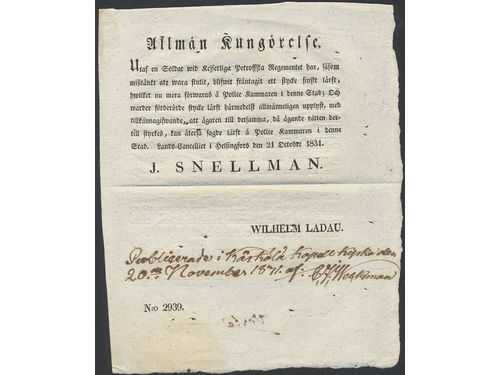 Allmän Kungörelse.
Utaf en Soldat wid Kejserliga Petroffska Regementet har, såsom
misstänkt att wara stulit, blifwit fråntagit ett stycke finare lärft,
hwilket nu mera förwaras å Police Kammaren i denne Stad; Och
warder förberörde stycke lärft härmedelst allmänneligen upplyst, med
tillkännagifwande, att ägaren till detsamma, då ägande rätten der-
till styrkes, kan återfå sagde lärft å Police Kammaren i denne
Stad. Lands-Cancelliet i Helsingfors den 21 Octobr 1831.
J. SNELLMAN.
WILHELM LADAU.
Publicerade i Kärkölä Kapell Kyrka den
20de November 1831. af:
N:o 2939.